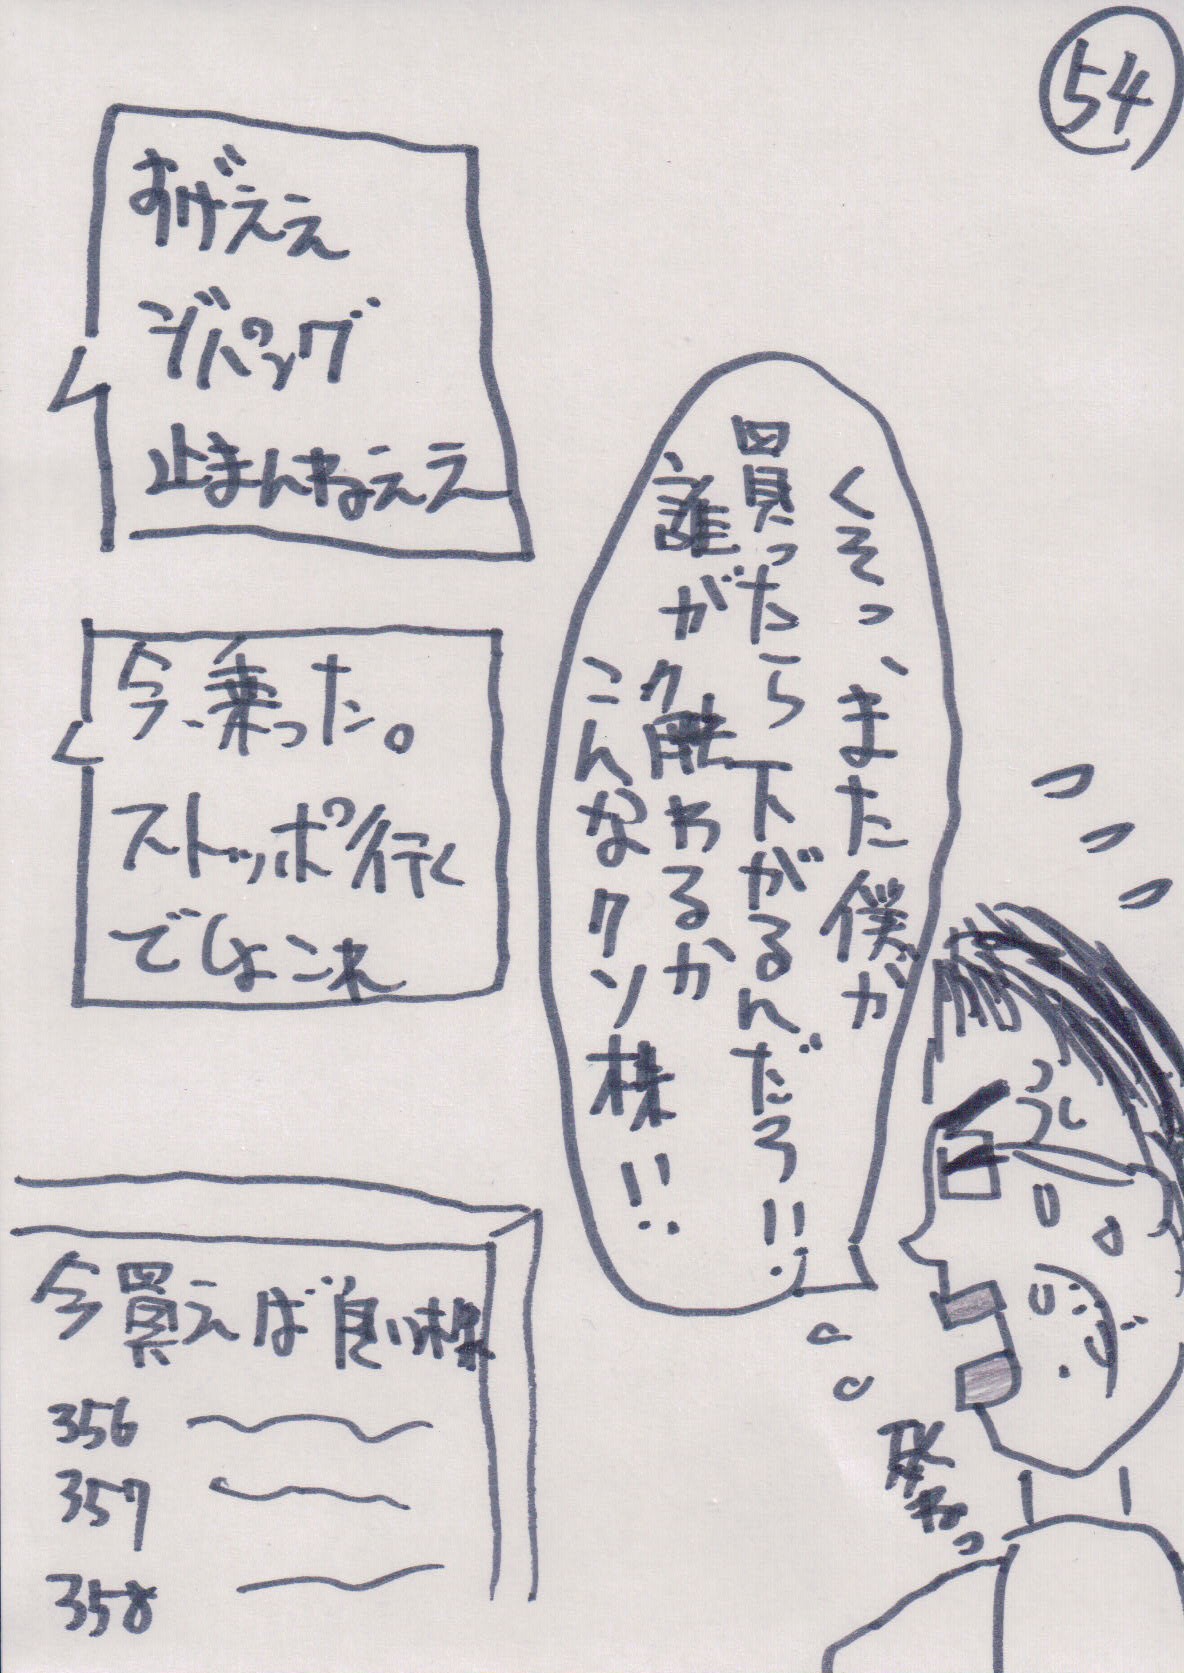 54
すげええ
ジパング
止まんねええ
くそっ、また僕が
買ったら下がるんだろ!!
誰が触わるか
こんなクソ株!!
今、乗った。
ストッポ行く
でしょこれ
今買えば良い株
356
357
358